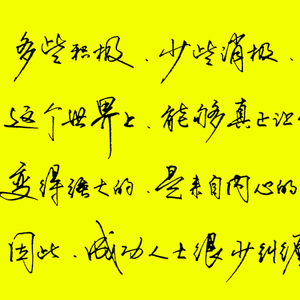 多些积极、少些消极、
这个世界上、能够真正让
变得强大的、是来自内心的
因此、成功人士很少纠缠